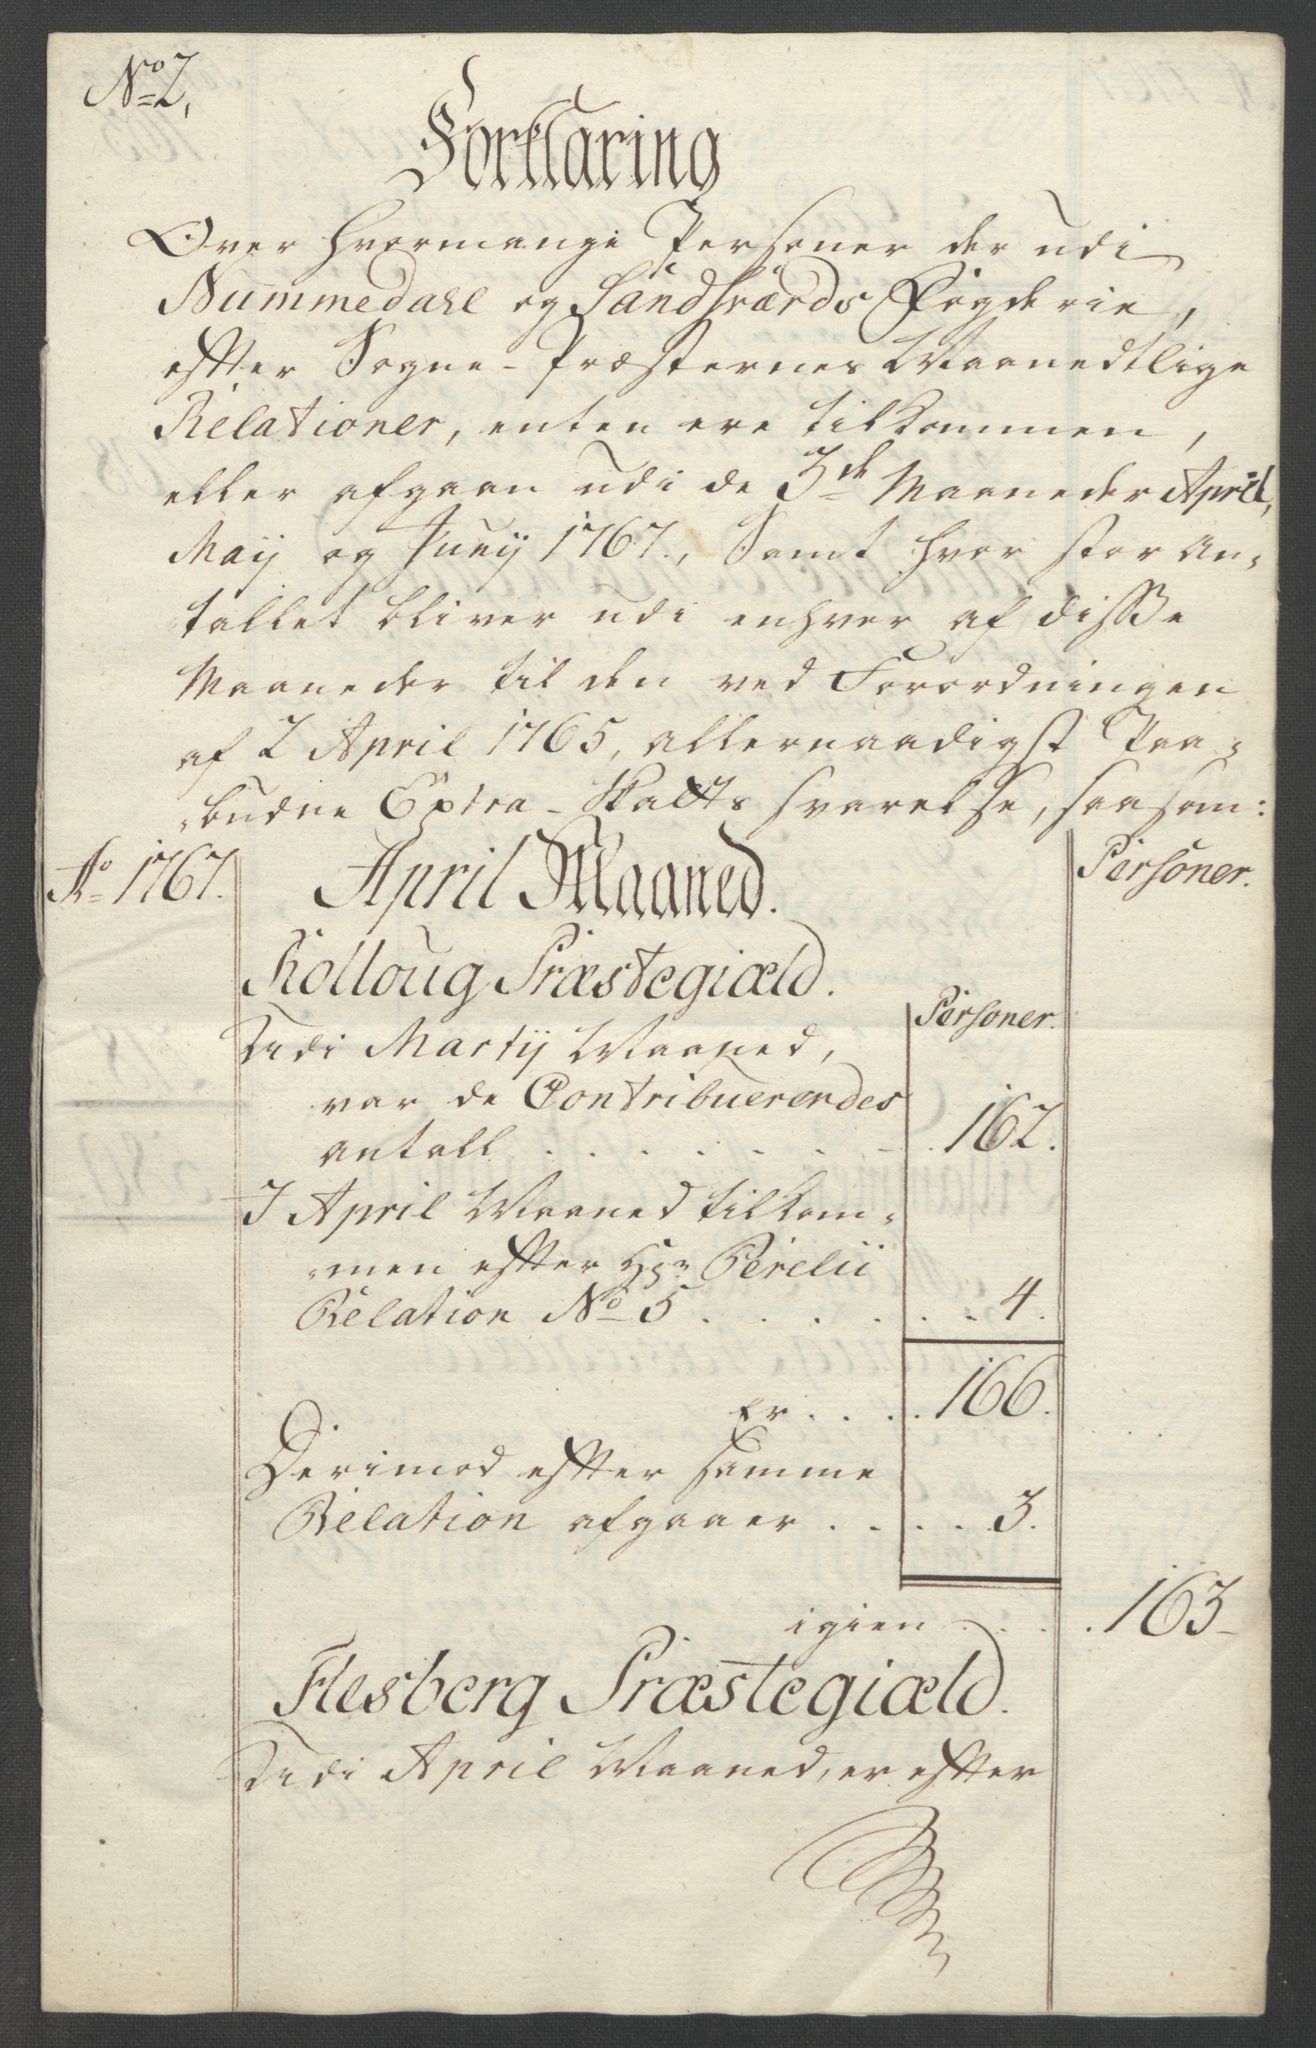 No 2,
Forklaring
Over Hvormange Personer der udi
Nummedahl og Sandsværds Fogderie,
efter Sogne-Præsternes Maanedtlige
Relationer, enten ere tilkommen,
eller afgaan udi de 3de Maaneder April,
Maij og Junij 1767., Samt hvor stor An-
tallet bliver udi enhver af disse
Maaneder til den ved Forordningen
af 2 April 1765, allernaadigst Paa-
budne Extra-Skatts svarelse, saasom:
Ao 1767. April Maaned. Personer.
Rolloug Præstegiæld.
Udi Martij Maaned, Personer.
var de Contribuerendes
antall . . . . . . . 162.
I April Maaned tilkom-
men efter Hr Perelii
Relation No 5 . . . . . . 4.
Er . . . . 166.
Derimod efter samme
Relation afgaaer . . . . . 3.
igien . . . . 163
Flesberg Præstegiæld.
Udi April Maaned, er efter